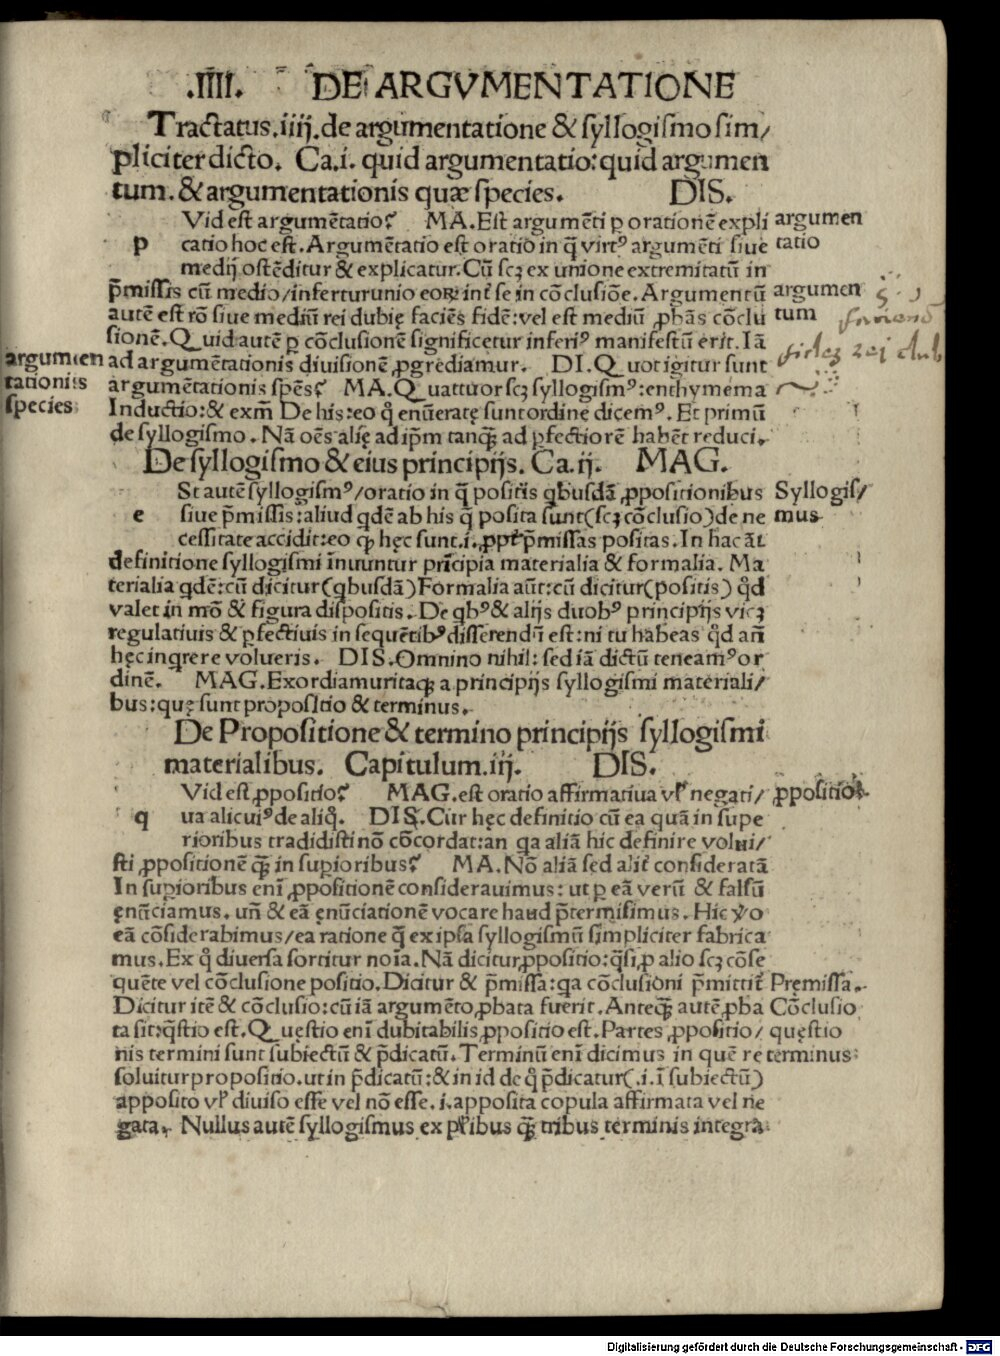 .IIII. DE ARGVMENTATIONE
Tractatus.iiij.de argumentatione & syllogismo sim/
pliciter dicto. Ca.i. quid argumentatio:quid argumen
tum.& argumentationis quæ species. DIS.
Vid est argumẽtatio? MA.Est argumẽti ꝑ orationẽ expli
p catio hoc est.Argumẽtatio est oratio in q̃ virtꝰ argumẽti siue
medij ostẽditur & explicatur.Cũ scꝫ ex unione extremitatũ in
p̃missis cũ medio/infertur unio eoꝝ int̃ se in cõclusiõe.Argumentũ
autẽ est rõ siue mediũ rei dubię faciẽs fidẽ:vel est mediũ ꝓbãs cõclu
sionẽ.Quid autẽ ꝑ cõclusionẽ significetur inferiꝰ manifestũ erit.Iã
ad argumẽtationis diuisionẽ ꝓgrediamur. DI.Quot igitur sunt
argumẽtationis spẽs? MA.Quattuor scꝫ syllogismꝰ:enthymema
Inductio:& exm̃ De his:eo q̊ enũeratę sunt ordine dicemꝰ.Et primũ
de syllogismo.Nã oẽs alię ad ip̃m tanq̃ꝫ ad ꝑfectiorẽ habẽt reduci.
argumen
tatio
argumen
tum
argumen
tationis
species
De syllogismo & eius principijs. Ca.ij. MAG.
St autẽ syllogismꝰ/oratio in q̃ positis qbusdã ꝓpositionibus
e siue p̃missis:aliud qdẽ ab his q̃ posita sunt(scꝫ cõclusio)de ne
cessitate accidit:eo ꝙ hęc sunt.i.ꝓpt̃ p̃missas positas.In hac ãt
definitione syllogismi inuuntur principia materialia & formalia. Ma
terialia qdẽ:cũ dicitur(qbusdã)Formalia aũt:cũ dicitur(positis) q̊d
valet in mõ & figura dispositis.De qbꝰ & alijs duobꝰ principijs vicꝫ
regulatiuis & ꝑfectiuis in sequẽtibꝰ disserendũ est:ni tu habeas q̊d añ
hęc inqrere volueris. DIS.Omnino nihil:sed iã dictũ teneamꝰ or
dinẽ. MAG.Exordiamur itaqꝫ a principijs syllogismi materiali/
bus:quę sunt propositio & terminus.
Syllogis/
mus
De Propositione & termino principijs syllogismi
materialibus. Capitulum.iij. DIS.
Vid est ꝓpositio? MAG.est oratio affirmatiua vl̃ negati/
q ua alicuiꝰ de aliq̊. DIS.Cur hęc definitio cũ ea quã in supe
rioribus tradidisti nõ cõcordat:an qa aliã hic definire volui/
sti ꝓpositionẽ q̃ꝫ in suꝑioribus? MA.Nõ aliã sed alit̃ consideratã
In suꝑioribus enĩ ꝓpositionẽ considerauimus:ut ꝑ eã verũ & falsũ
ęnũciamus.uñ & eã ęnũciationẽ vocare haud p̃termisimus.Hic ṽo
eã cõsiderabimus/ea ratione q̃ ex ipsa syllogismũ simpliciter fabrica
mus.Ex q̊ diuersa sortitur noĩa.Nã dicitur ꝓpositio:q̃si ꝓ alio scꝫ cõse
quẽte vel cõclusione positio.Dicitur & p̃missa:qa cõclusioni p̃mittit̃
Dicitur itẽ & cõclusio:cũ iã argumẽto ꝓbata fuerit.Anteq̃ꝫ autẽ ꝓba
ta sit:q̃stio est.Quęstio enĩ dubitabilis ꝓpositio est.Partes ꝓpositio/
nis termini sunt subiectũ & p̃dicatũ.Terminũ enĩ dicimus in quẽ re
soluitur propositio.ut in p̃dicatũ:& in id de q̊ p̃dicatur(.i.ĩ subiectũ)
apposito vl̃ diuiso esse vel nõ esse.i.apposita copula affirmata vel ne
gata. Nullus autẽ syllogismus ex pl̃ibus q̃ꝫ tribus terminis integra
ꝓpositio.
Pręmissa.
Cõclusio
quęstio
terminus
Digitalisierung gefördert durch die Deutsche Forschungsgemeinschaft - DFG